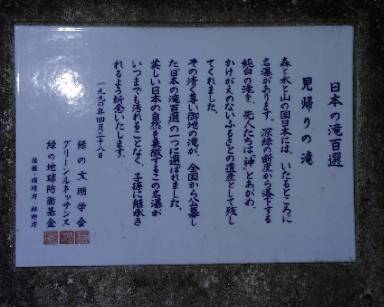 日本の滝百選
見帰りの滝
森と水と山の国日本には、いたるところに
名瀑があります。深緑の断崖から落下する
純白の滝を、先人たちは"神"とあがめ、
かけがえのないふるさとの遺産として残し
てくれました。
その清く尊い御地の滝が、全国から公募し
た日本の滝百選の一つに選ばれました。
美しい日本の自然を象徴するこの名瀑が
いつまでも汚れることなく、子孫に継承さ
れるよう祈念いたします。
一九九〇年四月二十八日
緑の文明学会
グリーンルネッサンス
緑の地球防衛基金
後援・環境庁・林野庁